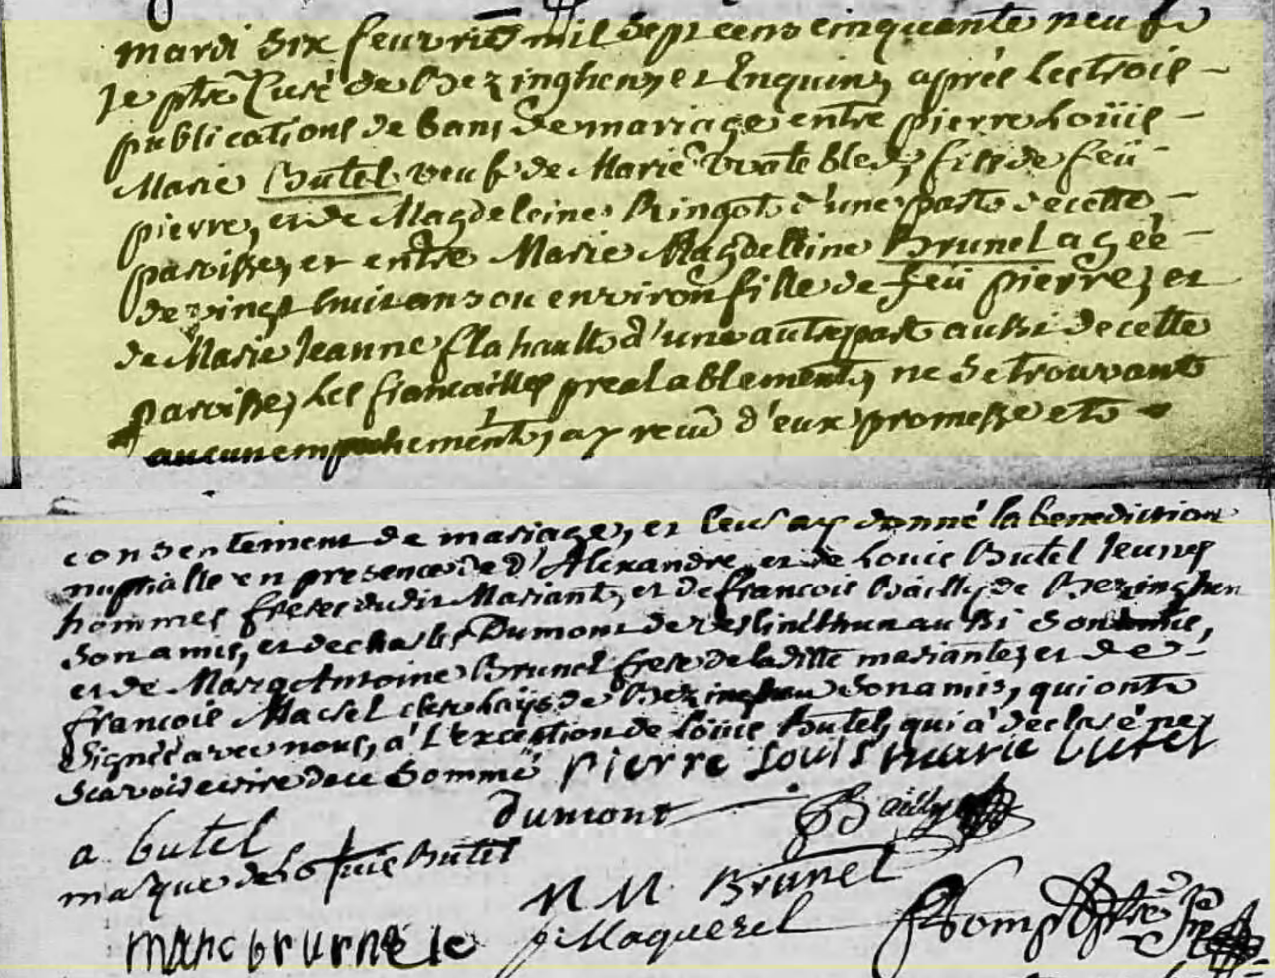 mardi six feuvrier mil sept cens cinquante neuf
Je ptre Curé de Bezinghen, et Enquin, aprés les trois
publications de bans de mariage entre pierre Loüis
Marie Butel veuf de Marie watteble, fils de feü
pierre, et de Magdeleine Ringot d'une part de cette
paroisse, et entre Marie Magdelleine Brunel agée
de vingt huit ans ou environ fille de feü pierre, et
de Marie Jeanne flahault d'une autre part aussi de cette
paroisse, les fiancailles prealablement, ne se trouvant
aucun empechement, ay recu d'eux promesse et
consentement de mariage, et leur ay donné la benediction
nuptialle en presence de d'Alexandre, et de Louis Butel Jeunes
hommes freres dudit Mariant, et de francois Bailly de Bezinghen
son amis, et de charles Dumont de aussi son amis,
et de Marq Antoine Brunel frere de laditte mariante, et de
francois Macrel de Bezinghen son amis, qui ont
signé avec nous, à l'exception de loüis Butel, qui à declaré ne
scavoir ecrire de ce sommé pierre louis marie butel
dumont Bailly
a butel
marque de louis Butel
M M Brunel
marc brunele
f Maquerel